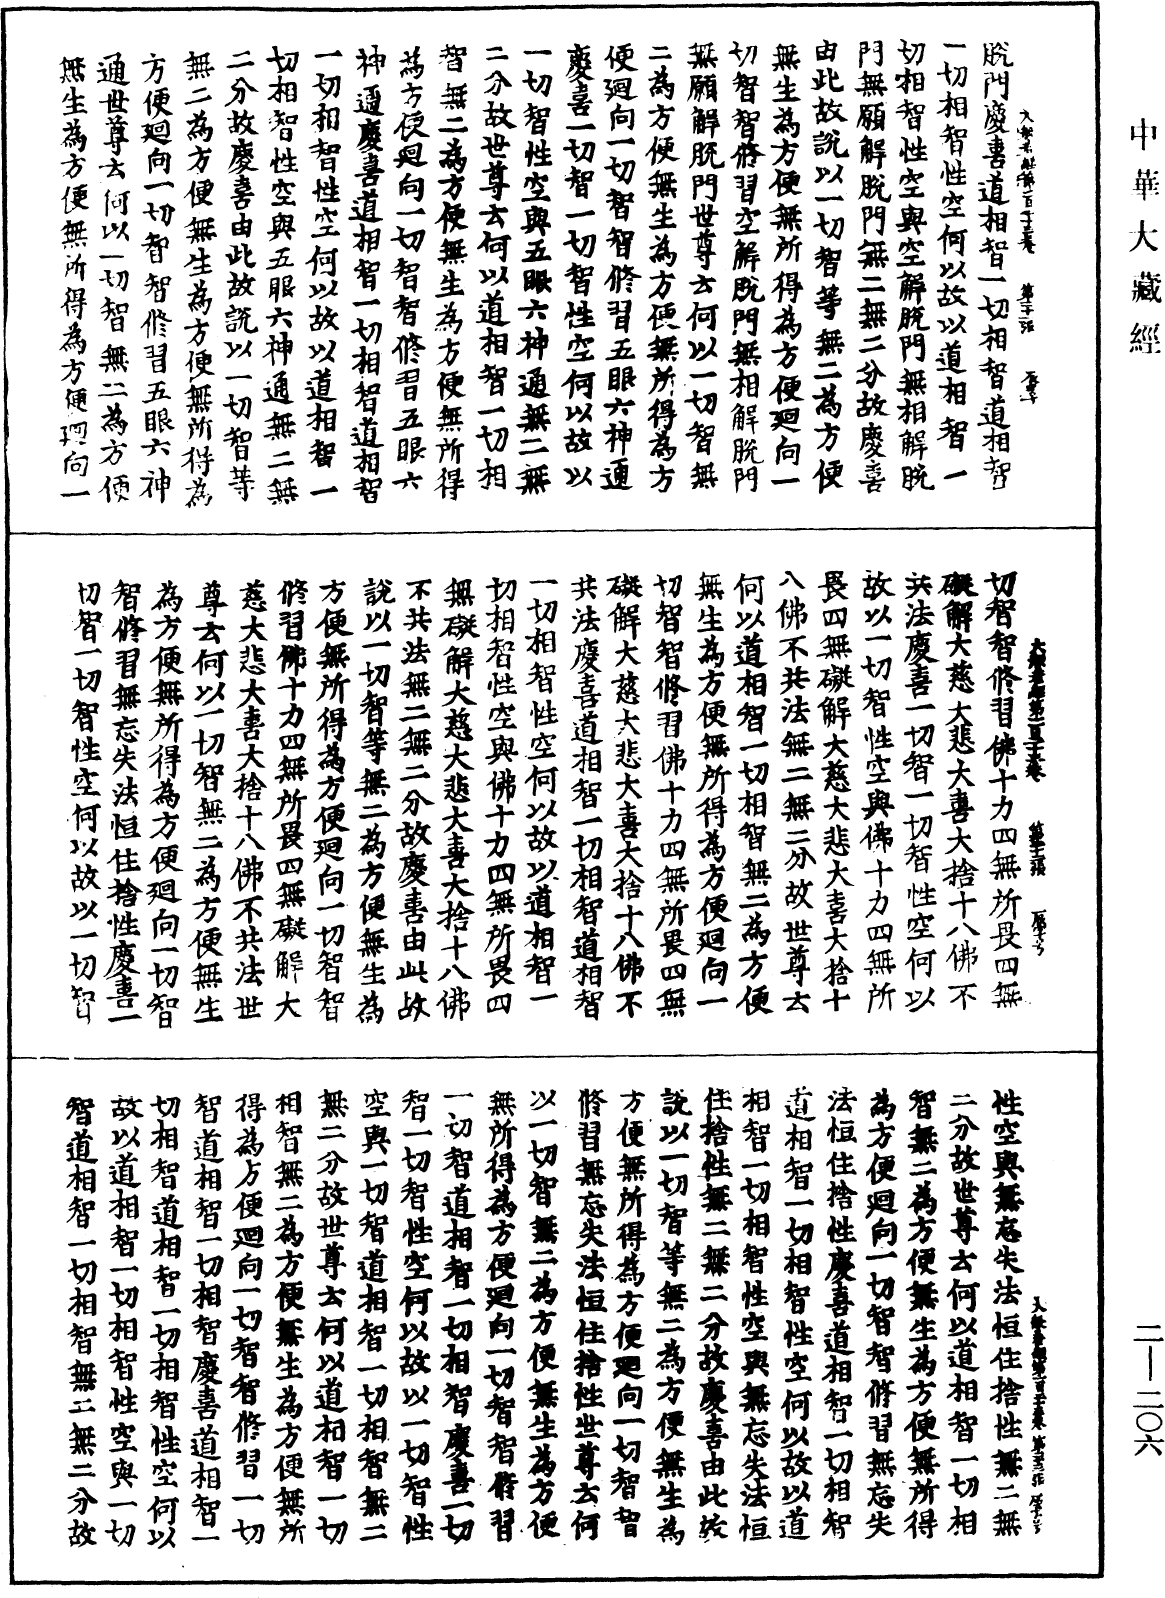 中華大藏經
脫門慶喜道相智一切相智道相智
一切相智性空何以故以道相智一
切相智性空與空解脫門無相解脫
門無願解脫門無二無二分故慶喜
由此故說以一切智等無二為方便
無生為方便無所得為方便廻向一
切智智修習空解脫門無相解脫門
無願解脫門世尊云何以一切智無
二為方便無生為方便無所得為方
便廻向一切智智修習五眼六神通
慶喜一切智一切智性空何以故以
一切智性空與五眼六神通無二無
二分故世尊云何以道相智一切相
智無二為方便無生為方便無所得
為方便廻向一切智智修習五眼六
神通慶喜道相智一切相智道相智
一切相智性空何以故以道相智一
切相智性空與五眼六神通無二無
二分故慶喜由此故說以一切智等
無二為方便無生為方便無所得為
方便廻向一切智智修習五眼六神
通世尊云何以一切智無二為方便
無生為方便無所得為方便廻向一
切智智修習佛十力四無所畏四無
礙解大慈大悲大喜大捨十八佛不
共法慶喜一切智一切智性空何以
故以一切智性空與佛十力四無所
畏四無礙解大慈大悲大喜大捨十
八佛不共法無二無二分故世尊云
何以道相智一切相智無二為方便
無生為方便無所得為方便廻向一
切智智修習佛十力四無所畏四無
礙解大慈大悲大喜大捨十八佛不
共法慶喜道相智一切相智道相智
一切相智性空何以故以道相智一
切相智性空與佛十力四無所畏四
無礙解大慈大悲大喜大捨十八佛
不共法無二無二分故慶喜由此故
說以一切智等無二為方便無生為
方便無所得為方便廻向一切智智
修習佛十力四無所畏四無礙解大
慈大悲大喜大捨十八佛不共法世
尊云何以一切智無二為方便無生
為方便無所得為方便廻向一切智
智修習無忘失法恒住捨性慶喜一
切智一切智性空何以故以一切智
性空與無忘失法恒住捨性無二無
二分故世尊云何以道相智一切相
智無二為方便無生為方便無所得
為方便廻向一切智智修習無忘失
法恒住捨性慶喜道相智一切相智
道相智一切相智性空何以故以道
相智一切相智性空與無忘失法恒
住捨性無二無二分故慶喜由此故
說以一切智等無二為方便無生為
方便無所得為方便廻向一切智智
修習無忘失法恒住捨性世尊云何
以一切智無二為方便無生為方便
無所得為方便廻向一切智智修習
一切智道相智一切相智慶喜一切
智一切智性空何以故以一切智性
空與一切智道相智一切相智無二
無二分故世尊云何以道相智一切
相智無二為方便無生為方便無所
得為方便廻向一切智智修習一切
智道相智一切相智慶喜道相智一
切相智道相智一切相智性空何以
故以道相智一切相智性空與一切
智道相智一切相智無二無二分故
二—二〇六